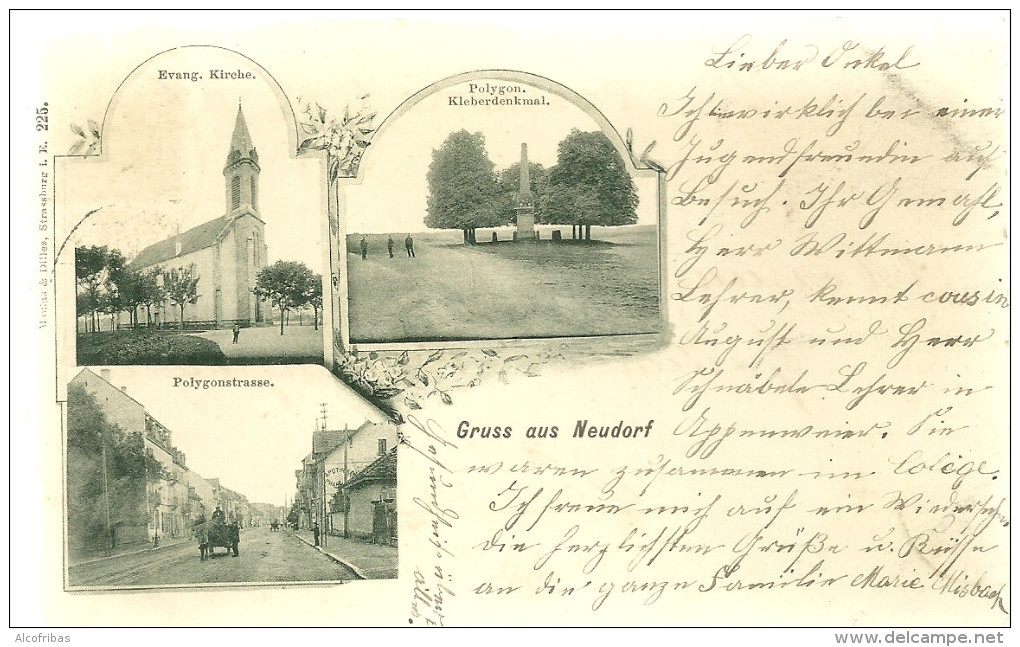 Evang. Kirche.
Polygon.
Kleberdenkmal.
Polygonstrasse.
Gruss aus Neudorf
& Dilles, Strassburg i. E. 225.
Lieber Onkel
Ich wirklich bei einer
Jugendfreundin auf
Besuch. Ihr Gemahl,
Herr Wittmann
Lehrer, kennt cousin
August und Herr
Schnäbele Lehrer in
Appenweier. Sie
waren zusammen im Colège.
Ich freue mich auf ein Wiedersehn
die herzlichsten Grüße u. Küsse
an die ganze Familie Marie Misbach
Alcofribas
www.delcampe.net